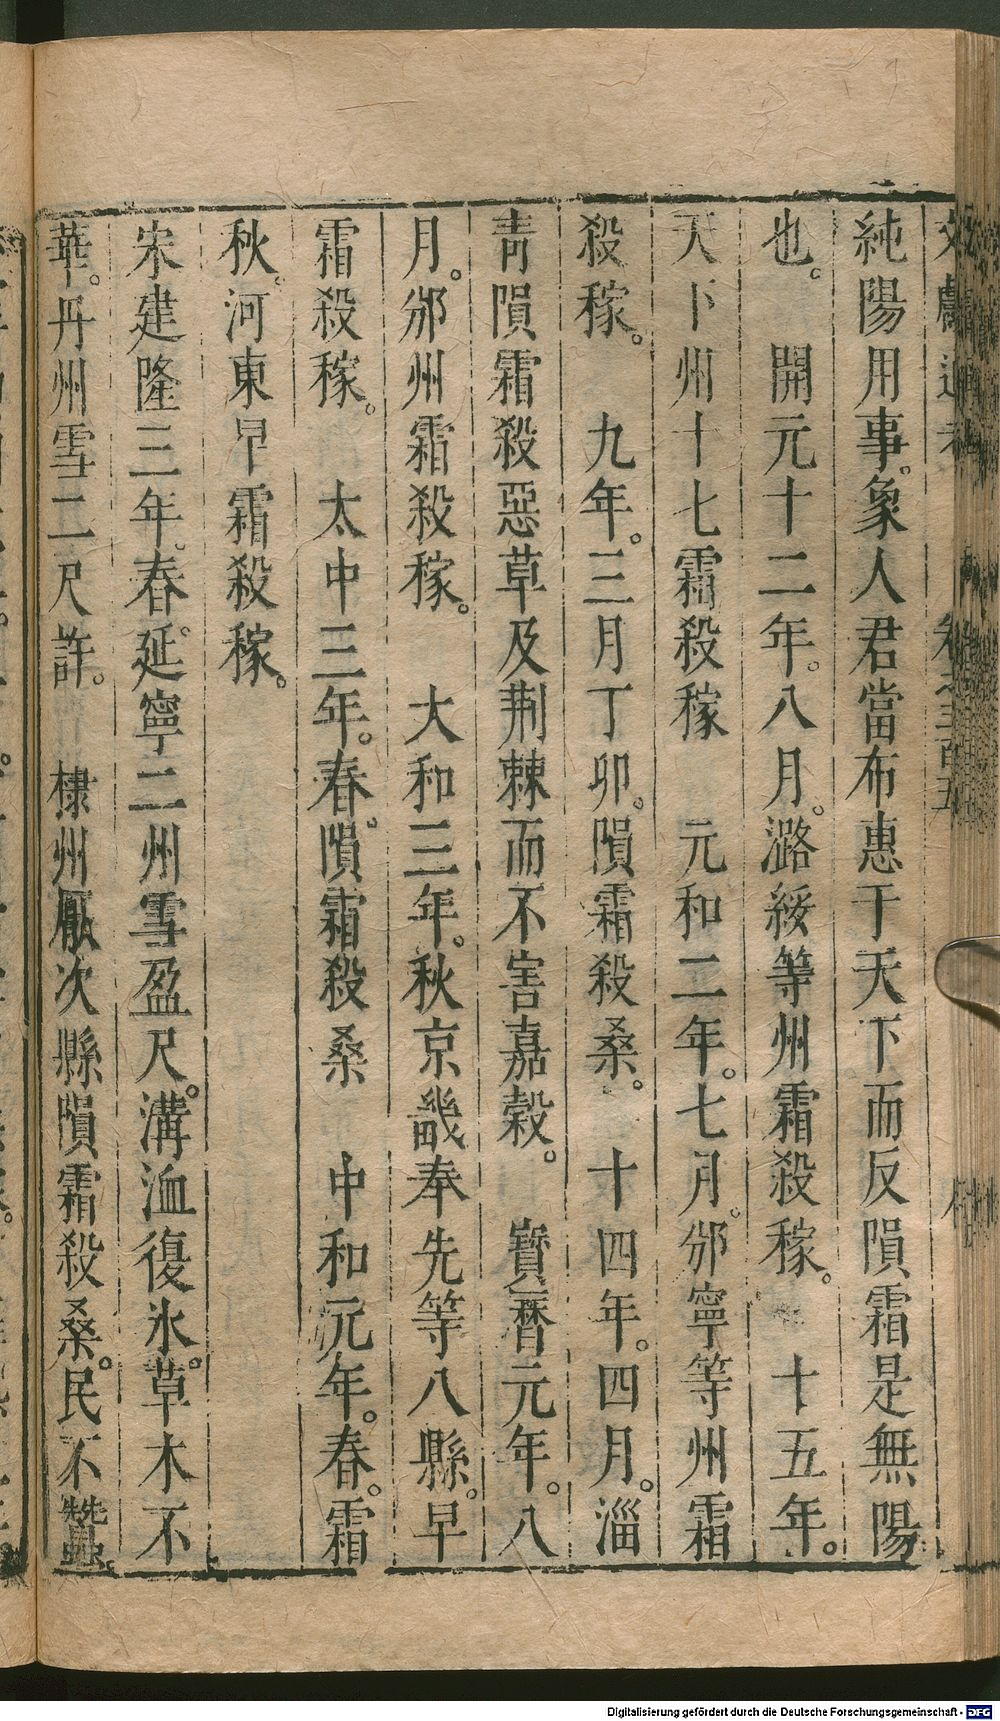 文獻通考　卷之三百五
純陽用事。象人君當布惠于天下而反隕霜是無陽
也。　開元十二年。八月。潞綏等州霜殺稼。　十五年。
天下州十七霜殺稼　元和二年。七月。邠寧等州霜
殺稼。　九年。三月丁卯。隕霜殺桑。　十四年。四月。淄
青隕霜殺惡草及荆棘而不害嘉穀。　寶曆元年。八
月。邠州霜殺稼。　大和三年。秋京畿奉先等八縣。早
霜殺稼。　太中三年。春。隕霜殺桑　中和元年。春。霜
秋。河東早霜殺稼。
宋建隆三年。春。延寧二州雪盈尺。溝洫復氷。草木不
華。丹州雪二尺許。　棣州厭次縣隕霜殺桑。民不蠶。
Digitalisierung gefördert durch die Deutsche Forschungsgemeinschaft - DFG